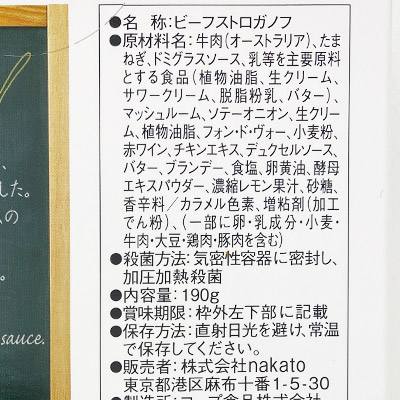 ●名 称:ビーフストロガノフ
●原材料名:牛肉(オーストラリア)、たま
ねぎ、ドミグラスソース、乳等を主要原料
とする食品(植物油脂、生クリーム、
サワークリーム、脱脂粉乳、バター)、
マッシュルーム、ソテーオニオン、生クリー
ム、植物油脂、フォン・ド・ヴォー、小麦粉、
赤ワイン、チキンエキス、デュクセルソース、
バター、ブランデー、食塩、卵黄油、酵母
エキスパウダー、濃縮レモン果汁、砂糖、
香辛料/カラメル色素、増粘剤(加工
でん粉)、(一部に卵・乳成分・小麦・
牛肉・大豆・鶏肉・豚肉を含む)
●殺菌方法:気密性容器に密封し、
加圧加熱殺菌
●内容量:190g
●賞味期限:枠外左下部に記載
●保存方法:直射日光を避け、常温
で保存してください。
●販売者:株式会社nakato
東京都港区麻布十番1-5-30
した。
の
sauce.